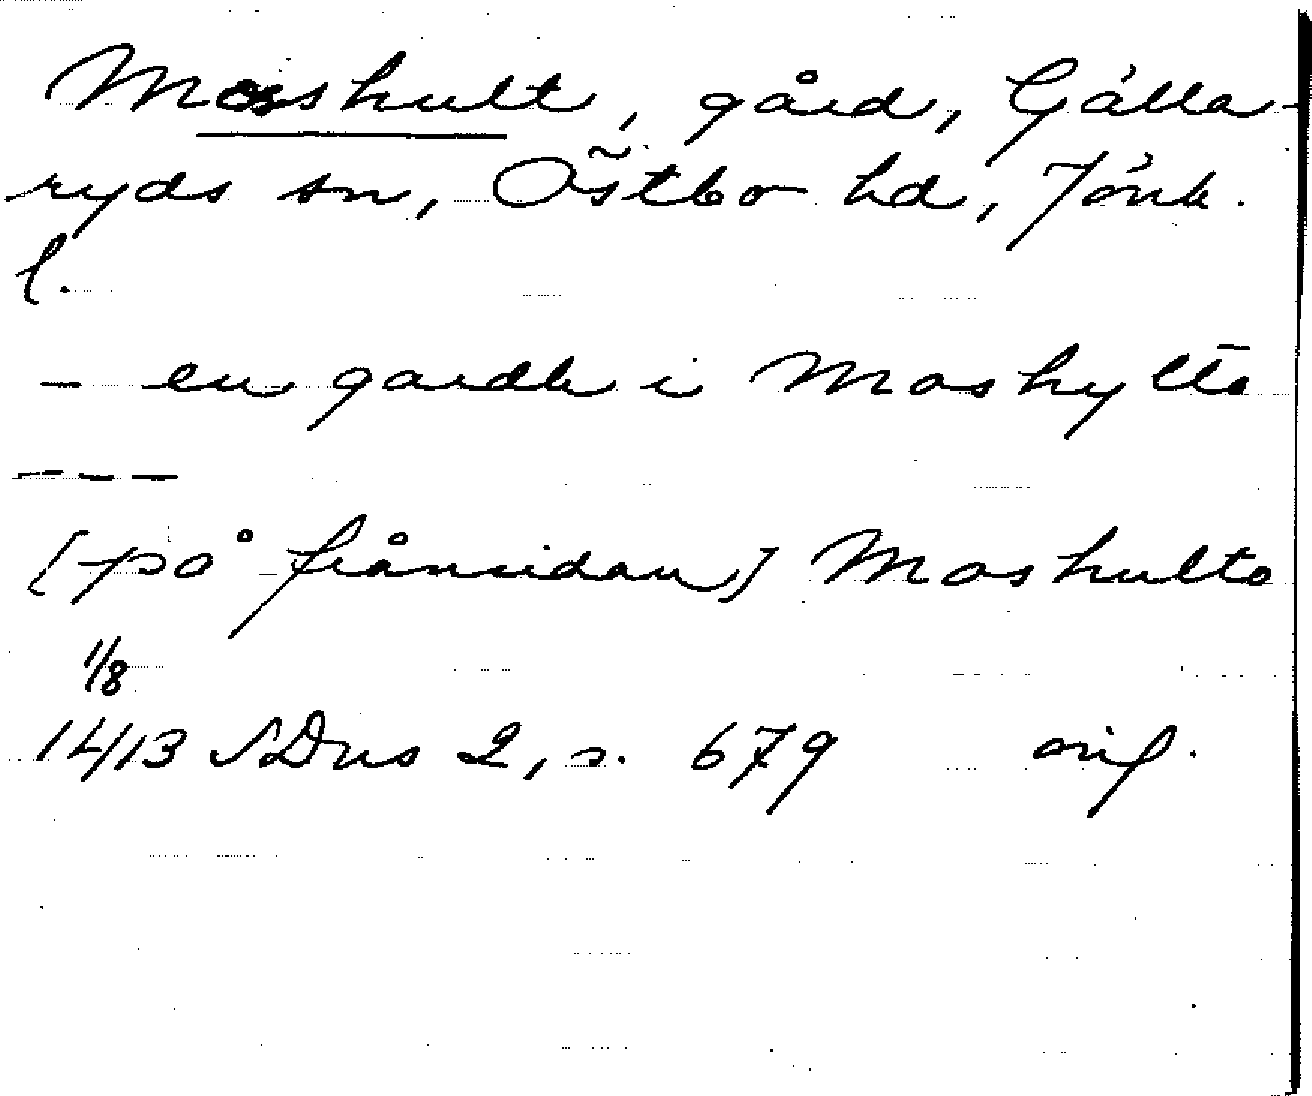 Moshult, gård, Gälla-
ryds sn, Östbo hd, Jönk.
l.
– en gardh i Moshylto
– – –
[på frånsidan] Moshulto
1/8
1413 SDns 2, s. 679 orig.